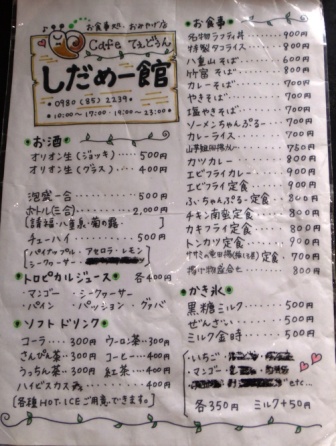 お食事処・おみやげ店
Cafe てぇどぅん
しだめー館
☎0980(85)2239
10:00〜17:00・19:00〜23:00
お酒
オリオン生(ジョッキ)・・・・500円
オリオン生(グラス)・・・・400円
泡盛一合・・・・500円
ボトル(三合)・・・・2,000円
[請福・八重泉・菊の露・ ]
チューハイ・・・・500円
[パイナップル・アセロラ・レモン
シークヮーサー ]
トロピカルジュース 各400円
・マンゴー ・シークヮーサー
・パイン ・パッション ・グァバ
ソフトドリンク
コーラ・・・300円 ウーロン茶・・・300円
さんぴん茶・・300円 コーヒー・・・・400円
うっちん茶・・300円 紅茶・・・・400円
ハイビスカス茶・・・・400円
[各種HOT・ICEご用意できます。]
お食事
名物ラフティ丼・・・・900円
特製タコライス・・・・900円
八重山そば・・・・600円
竹富そば・・・・800円
カレーそば・・・・700円
やきそば・・・・700円
塩やきそば・・・・700円
ソーメンちゃんぷるー・・・700円
カレーライス・・・・700円
750円
カツカレー・・・・800円
エビフライカレー・・・・900円
エビフライ定食・・・・900円
ふ・ちゃんぷるー定食・・800円
チキン南蛮定食・・・・800円
カキフライ定食・・・・800円
トンカツ定食・・・・900円
定食・・700円
揚げ物盛合せ・・・・800円
かき氷
黒糖ミルク・・・・500円
ぜんざい・・・・500円
ミルク金時・・・・500円
・いちご
・マンゴー
etc...
各350円 ミルク+50円